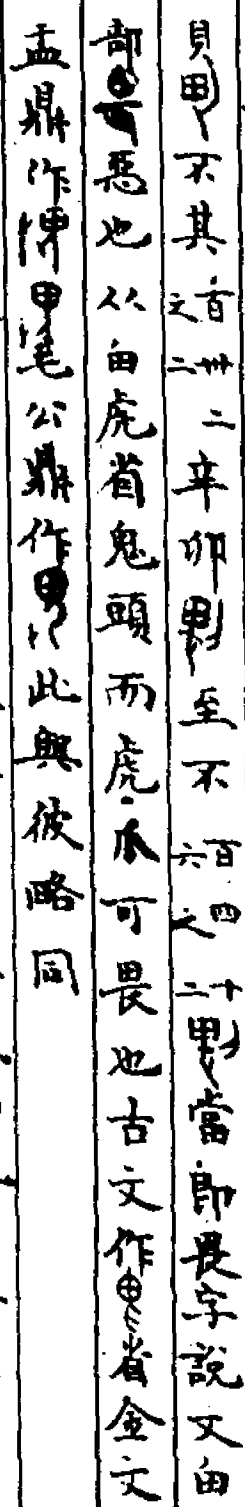 貝不其百卌二之二辛卯至不百四十六之二當即畏字說文由
部惡也从由虎省鬼頭而虎爪可畏也古文作省金文
盂鼎作毛公鼎作此與彼略同